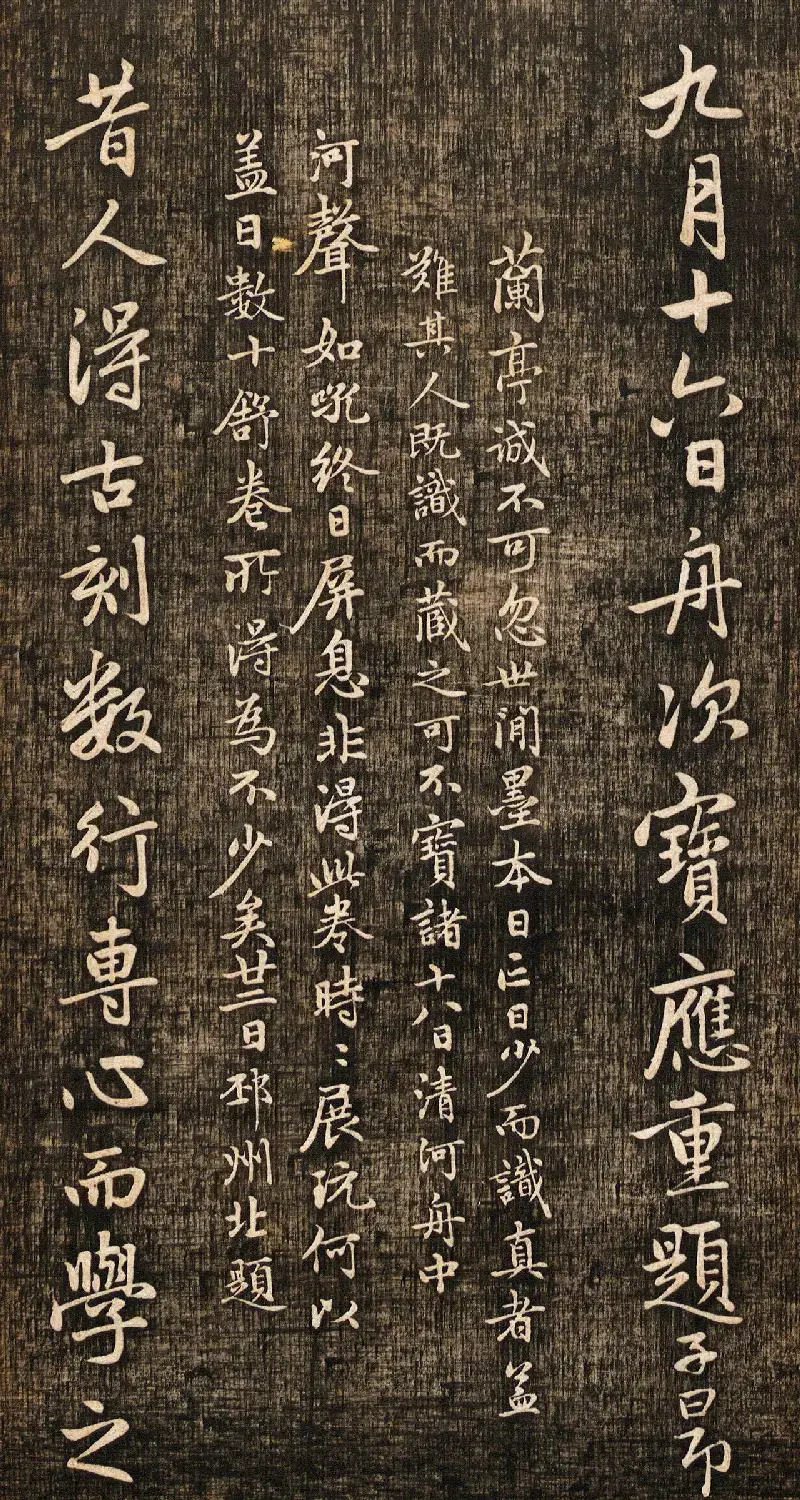 九月十六日舟次寶應重題子昂
蘭亭誠不可忽世間墨本日亡日少而識真者蓋
難其人既識而藏之可不寶諸十八日清河舟中
河聲如吼終日屏息非得此卷時〻展玩何以
蓋日數十舒卷所得為不少矣廿二日邳州北題
昔人得古刻數行專心而學之